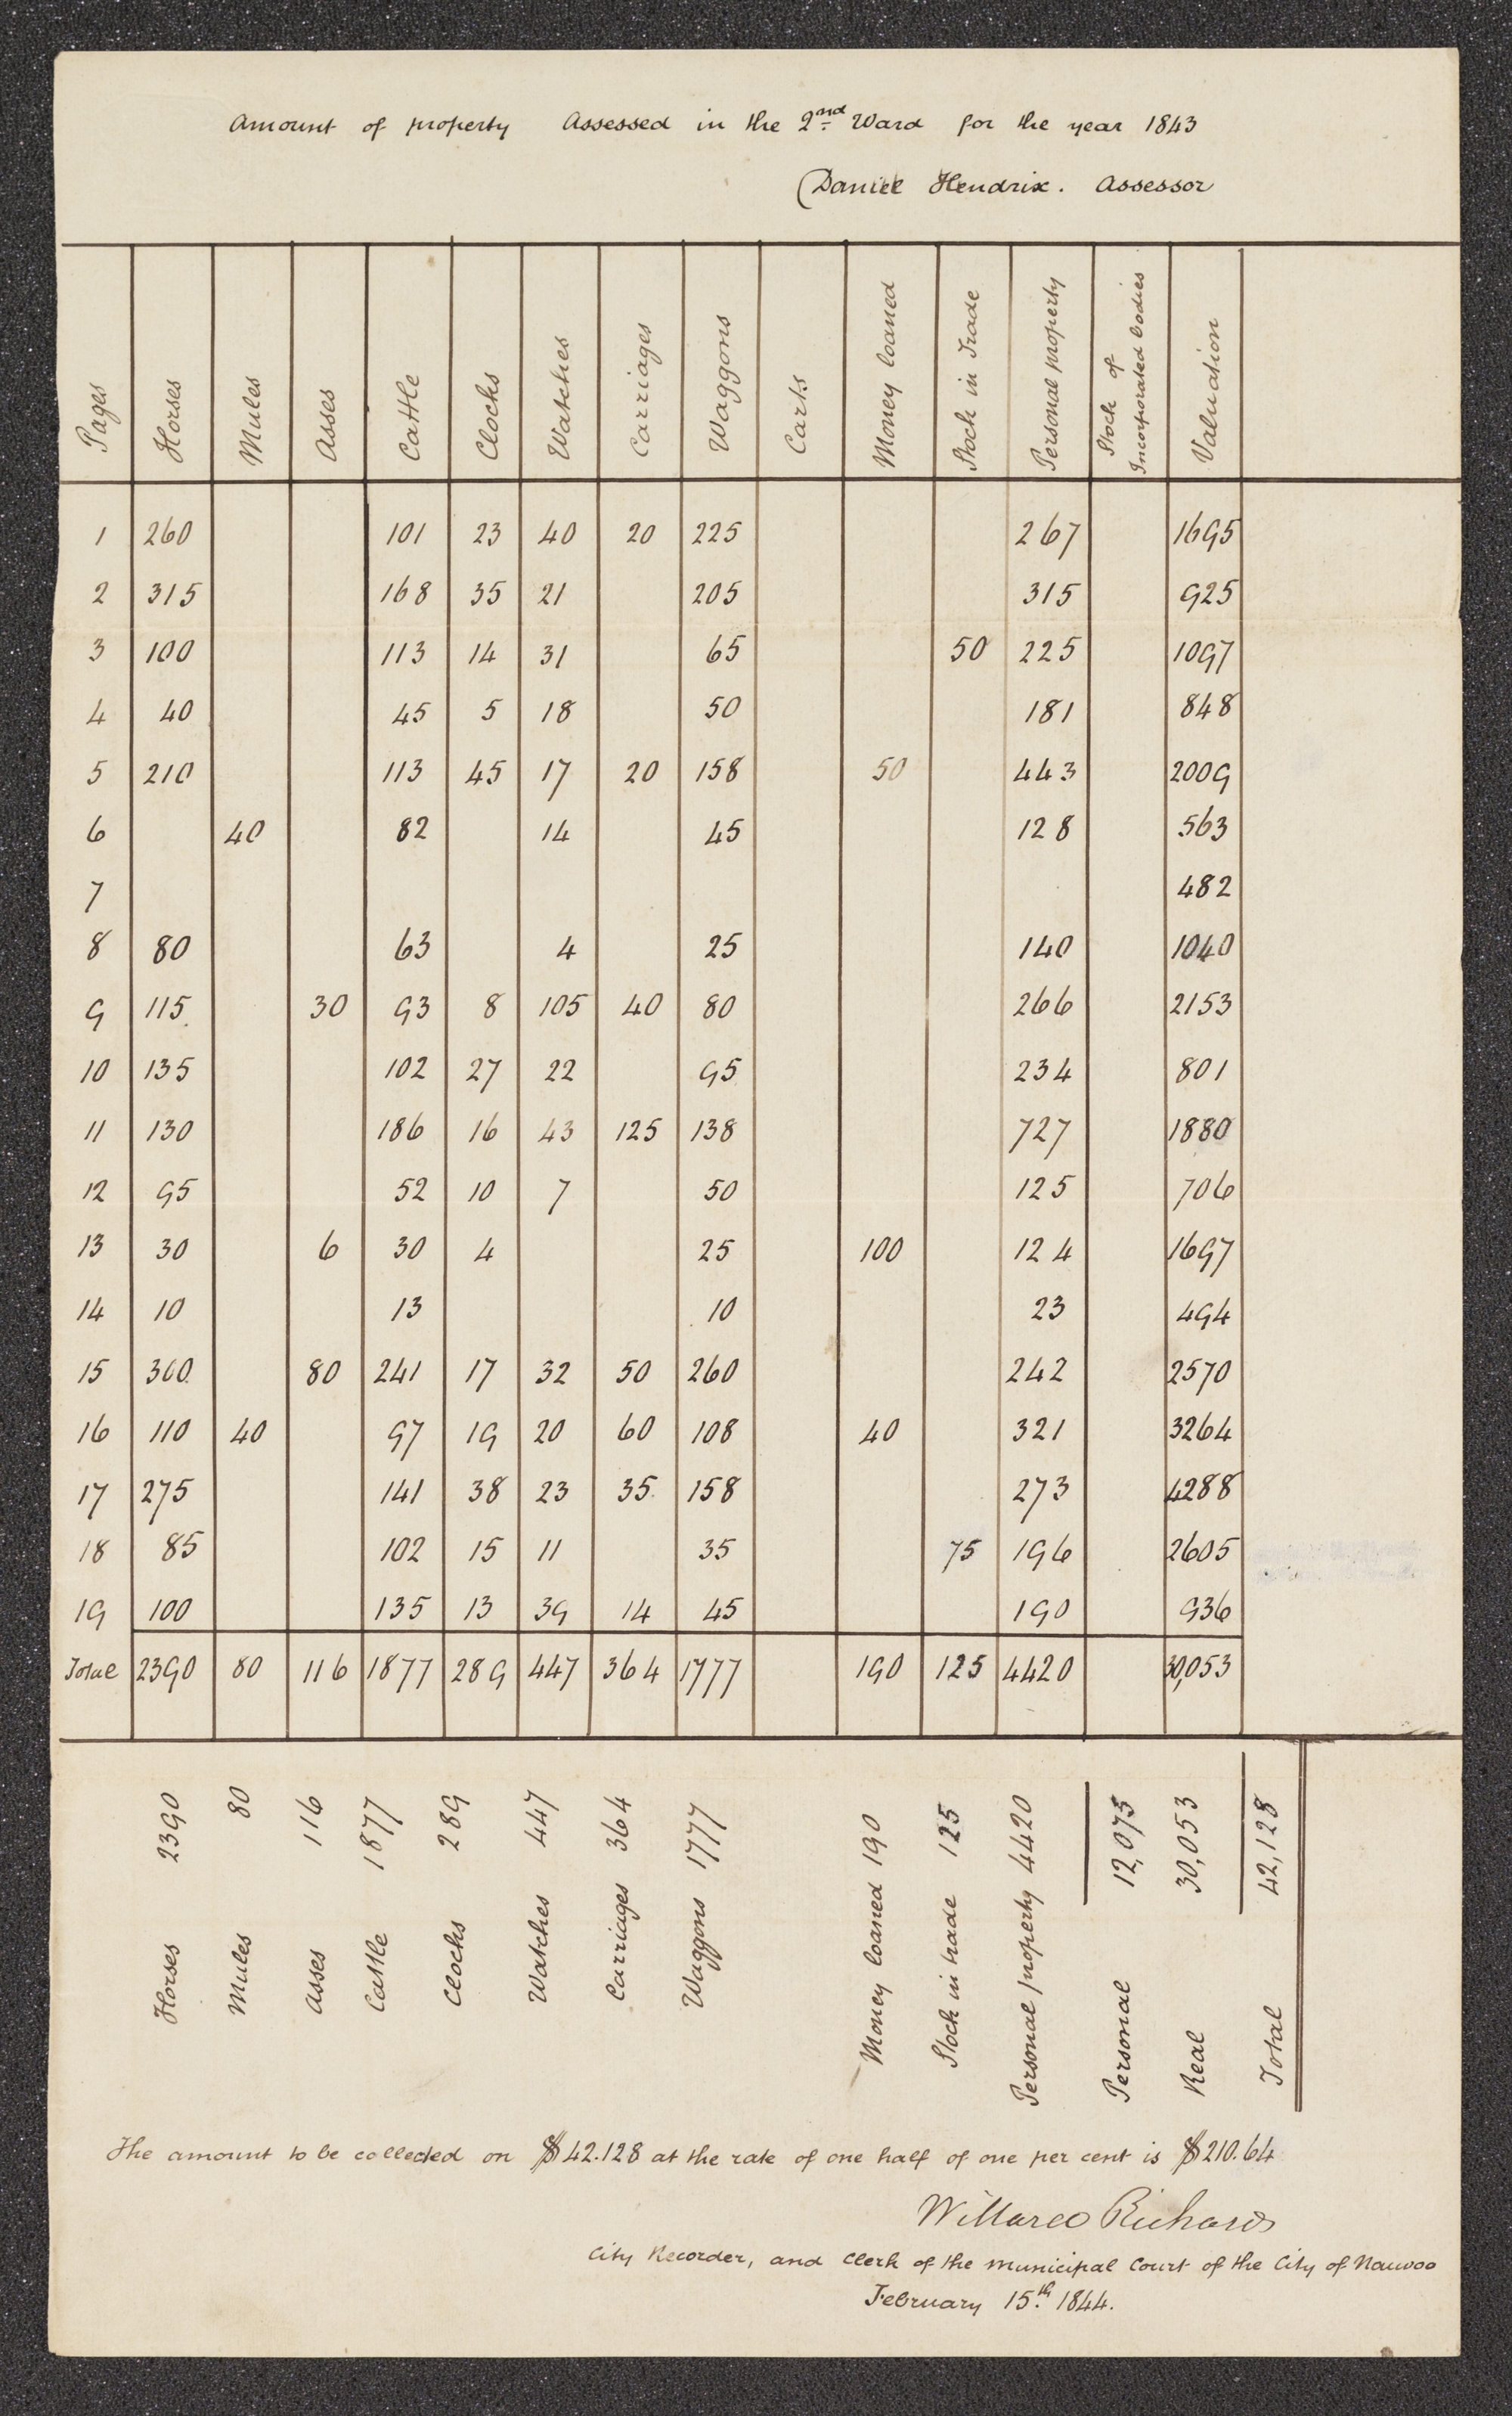 Amount of property Assessed in the 2nd Ward for the year 1843
Daniel Hendrix. Assessor
Pages Horses Mules Asses Cattle Clocks Watches Carriages Waggons Carts Money loaned Stock in Trade Personal property Stock of Incorporated bodies Valuation
1 260 101 23 40 20 225 267 1695
2 315 168 35 21 205 315 925
3 100 113 14 31 65 50 225 1097
4 40 45 5 18 50 181 848
5 210 113 45 17 20 158 50 443 2009
6 40 82 14 45 128 563
7 482
8 80 63 4 25 140 1040
9 115 30 93 8 105 40 80 266 2153
10 135 102 27 22 95 234 801
11 130 186 16 43 125 138 727 1880
12 95 52 10 7 50 125 706
13 30 6 30 4 25 100 124 1697
14 10 13 10 23 494
15 300 80 241 17 32 50 260 242 2570
16 110 40 97 19 20 60 108 40 321 3264
17 275 141 38 23 35 158 273 4288
18 85 102 15 11 35 75 196 2605
19 100 135 13 39 14 45 190 936
Total 2390 80 116 1877 289 447 364 1777 190 125 4420 30,053
Horses 2390
Mules 80
Asses 116
Cattle 1877
Clocks 289
Watches 447
Carriages 364
Waggons 1777
Money loaned 190
Stock in trade 125
Personal property 4420
Personal 12,075
Real 30,053
Total 42,128
The amount to be collected on $42.128 at the rate of one half of one per cent is $210.64
Willard Richards
City Recorder, and Clerk of the Municipal Court of the City of Nauvoo
February 15th 1844.